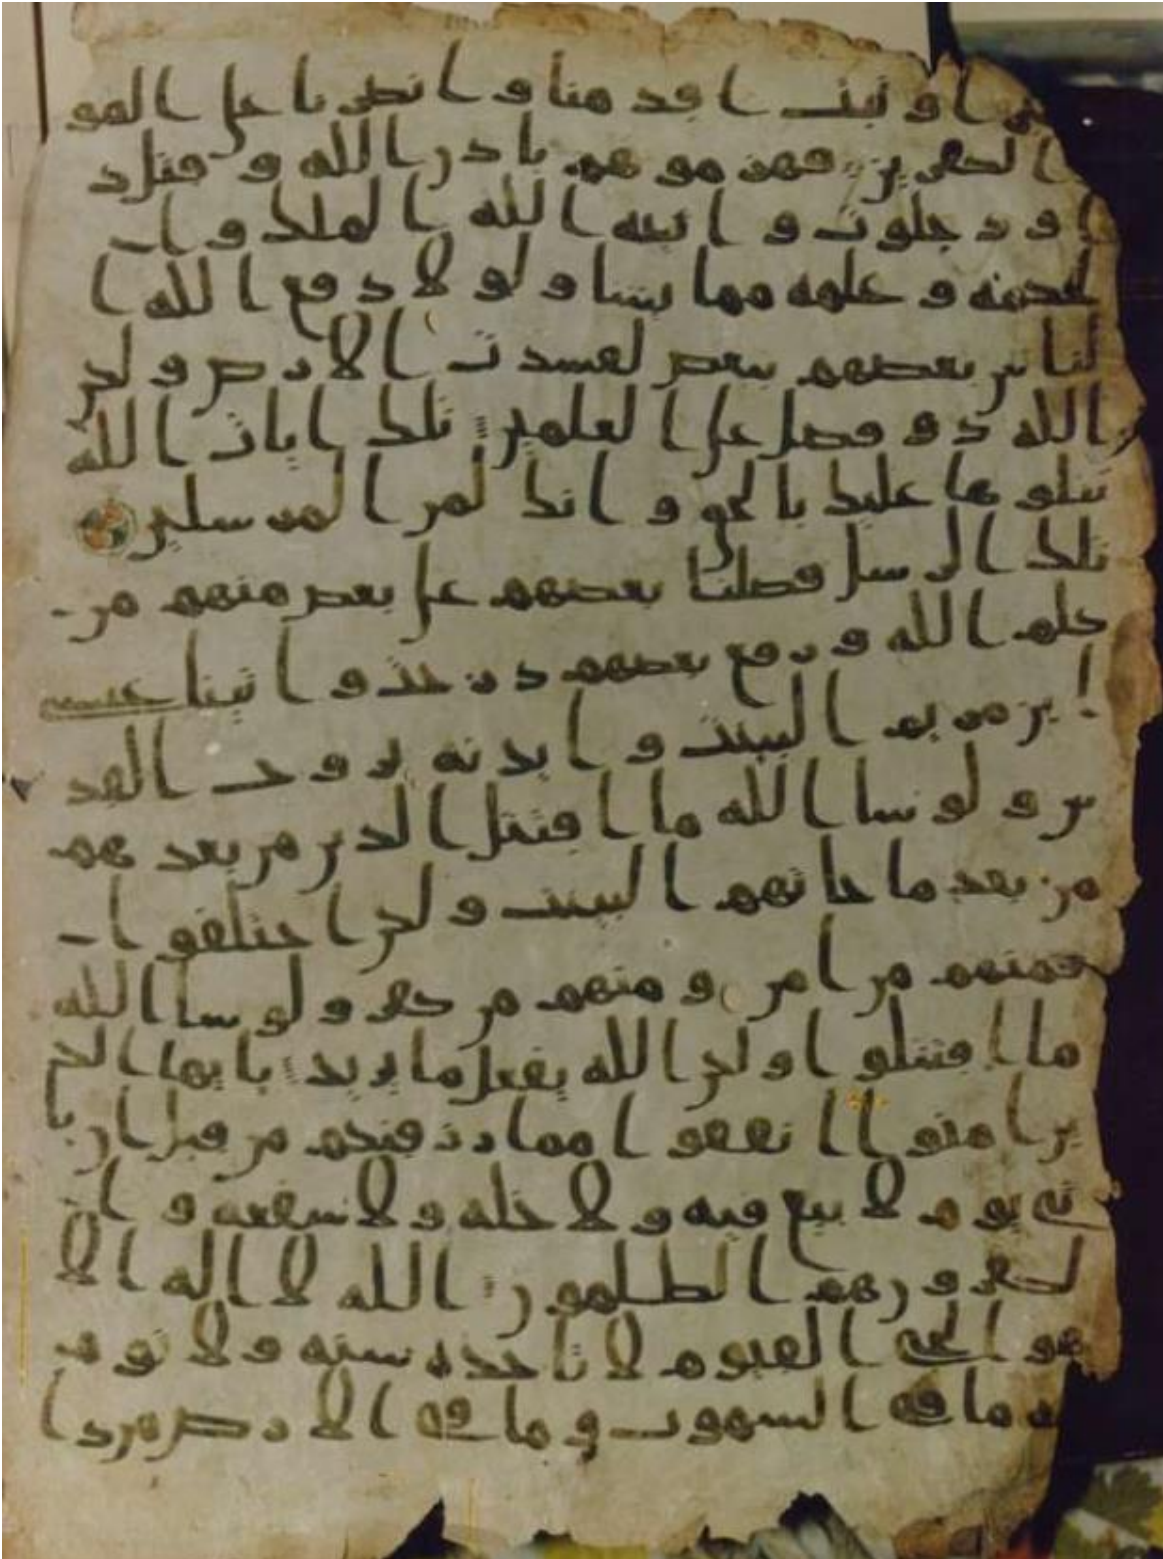 را و ثبت اقدمنا و انصرنا علی القو
م الکفرین فهزموهم باذن الله و قتل د
اود جلوت و اتیه الله الملک و ا
لحکمه و علمه مما یشا و لو لا دفع الله ا
لناس بعضهم ببعض لفسدت الارض و لکن
الله ذو فضل علی العلمین تلک ایات الله
نتلوها علیک بالحق و انک لمن المرسلین
تلک الرسل فضلنا بعضهم علی بعض منهم من
کلم الله و رفع بعضهم درجت و اتینا عیسی
ابن مریم البینت و ایدنه بروح القد
س و لو شا الله ما اقتتل الذین من بعدهم
من بعد ما جاتهم البینت و لکن اختلفوا
فمنهم من امن و منهم من کفر و لو شا الله
ما اقتتلوا و لکن الله یفعل ما یرید یایها الذ
ین امنوا انفقوا مما رزقنکم من قبل ان یا
تی یوم لا بیع فیه و لا خله و لا شفعه و ا
لکفرون هم الظلمون الله لا اله الا
هو الحی القیوم لا تاخذه سنه و لا نوم
له ما فی السموت و ما فی الارض من ذا